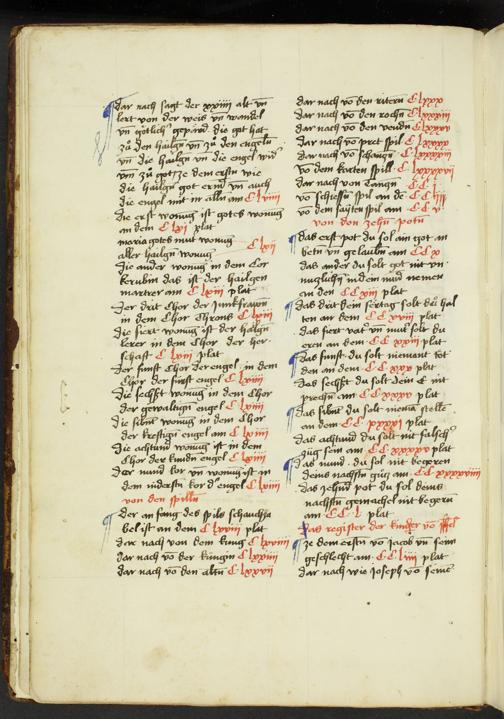 dar nach sagt der xxiiii alt vn
lert von der weis vn wandel
vn gotlich gepard die got hat
zu den hailgn vn zu den engeln
vn die hailgn vn die engel wid
vm zu got ze dem ersten wie
die hailgn got ernd vn auch
die engel mit in alln am C lviiii
Die erst wonug ist gotes wonug
an dem C lxi plat
maria gotes mut wonug
aller hailgn wonug C lxii
Die ander wonug in dem Cor
kerubin das ist der hailgen
martrer am C lxiii plat
Der drit Chor der Junkfrawn
in dem Chor Throns C lxiiii
Die fiert wonug ist der hailgn
lerer in dem Chor der her
schaft C lxiii plat
Der funft Chor der engel in dem
Chor der furst engel C lxv
Die sechst wonug in dem Chor
der gewaltign engel C lxiiii
Die sibent wonug in dem Chor
der kreftign engel am C lxiiii
Die achtund wonug ist in dem
Chor der kindn engel C lxiiii
Der nund kor vn wonug ist in
dem nidersten kor d engel C lxiiii
von den spilln
der an fang des spils schauchza
bel ist an dem C lxviii plat
dar nach von dem kung C lxxviii
dar nach vo der kungin C lxxiiii
dar nach vo den altn C lxxvii
dar nach vo den ritern C lxxx
dar nach vo den rochn C lxxxiii
dar nach vo den vendn C lxxxv
dar nach vo pret spil C lxxxx
dar nach vo schangn C lxxxxiii
vo dem karten spill C lxxxxvi
dar nach von Tanzn CC i
vo schiessn spil an de CC iiii
vo dem saytenspil am CC v
von den zehn potn
das erst pot du sol ain got an
betn vn gelaubn am CC x
das ander du solt got nit vn
nuczlichn in dein mud nemen
an den CC xiii plat
das drit dein feirtag solt du hal
ten an dem CC xviii plat
das fiert vat vn mut solt du
ern an dem CC xxii plat
das funft du solt niemant tot
den an dem CC xxv plat
das sechst du solt dein E nit
prechn am CC xxxv plat
das sibent du solt niema steln
am CC xxxxi plat
das achtund du solt nit falsch
zug sein am CC xxxxv plat
das nund du sol nit begeren
deins nachstn gutz am CC xxxxviiii
das zehnd pot du sol deins
nachstn gemachel nit begern
am CC l plat
das register der kinder vo jssel
ze dem ersten vo jacob vn seim
geschlecht am CC liii plat
dar nach wie Joseph vo seine